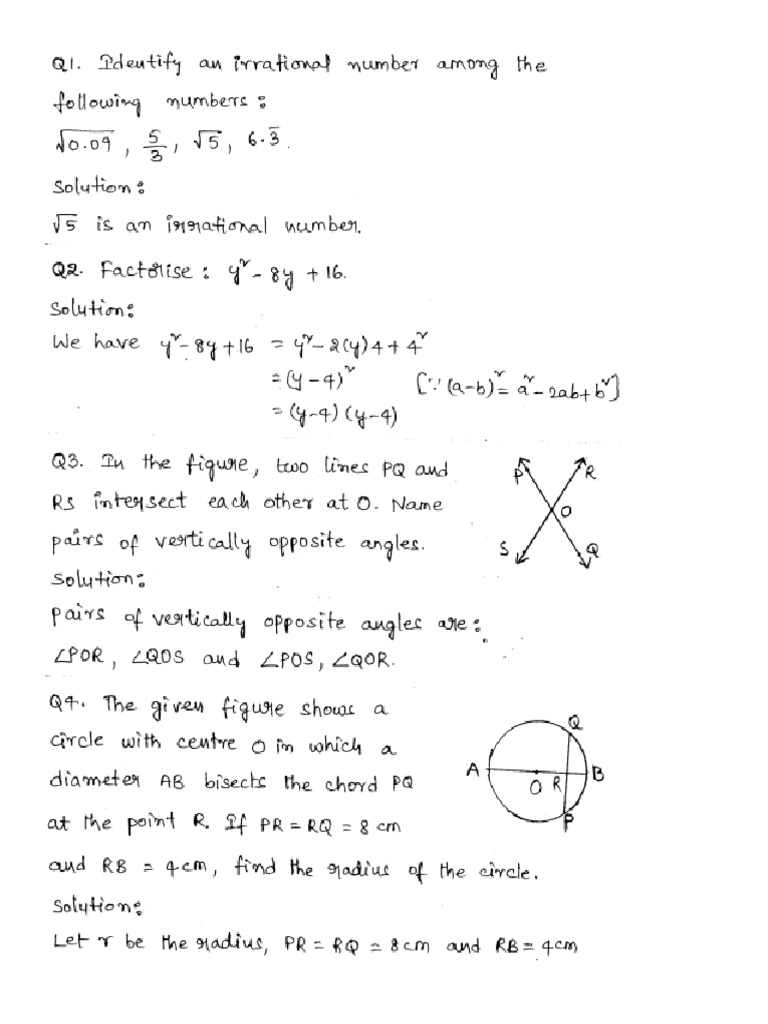 Q1. Identify an irrational number among the
following numbers:
√0.09, 5/3, √5, 6.3̅.
Solution:
√5 is an irrational number.
Q2. Factorise: y² - 8y + 16.
Solution:
We have y² - 8y + 16 = y² - 2(y)4 + 4²
= (y - 4)² [∵ (a-b)² = a² - 2ab + b²]
= (y-4) (y-4)
Q3. In the figure, two lines PQ and
RS intersect each other at O. Name
pairs of vertically opposite angles.
P R
O
S Q
Solution:
Pairs of vertically opposite angles are:
∠POR, ∠QOS and ∠POS, ∠QOR.
Q4. The given figure shows a
circle with centre O in which a
diameter AB bisects the chord PQ
at the point R. If PR = RQ = 8 cm
and RB = 4 cm, find the radius of the circle.
Q
A B
O R
P
Solution:
Let r be the radius, PR = RQ = 8 cm and RB = 4 cm